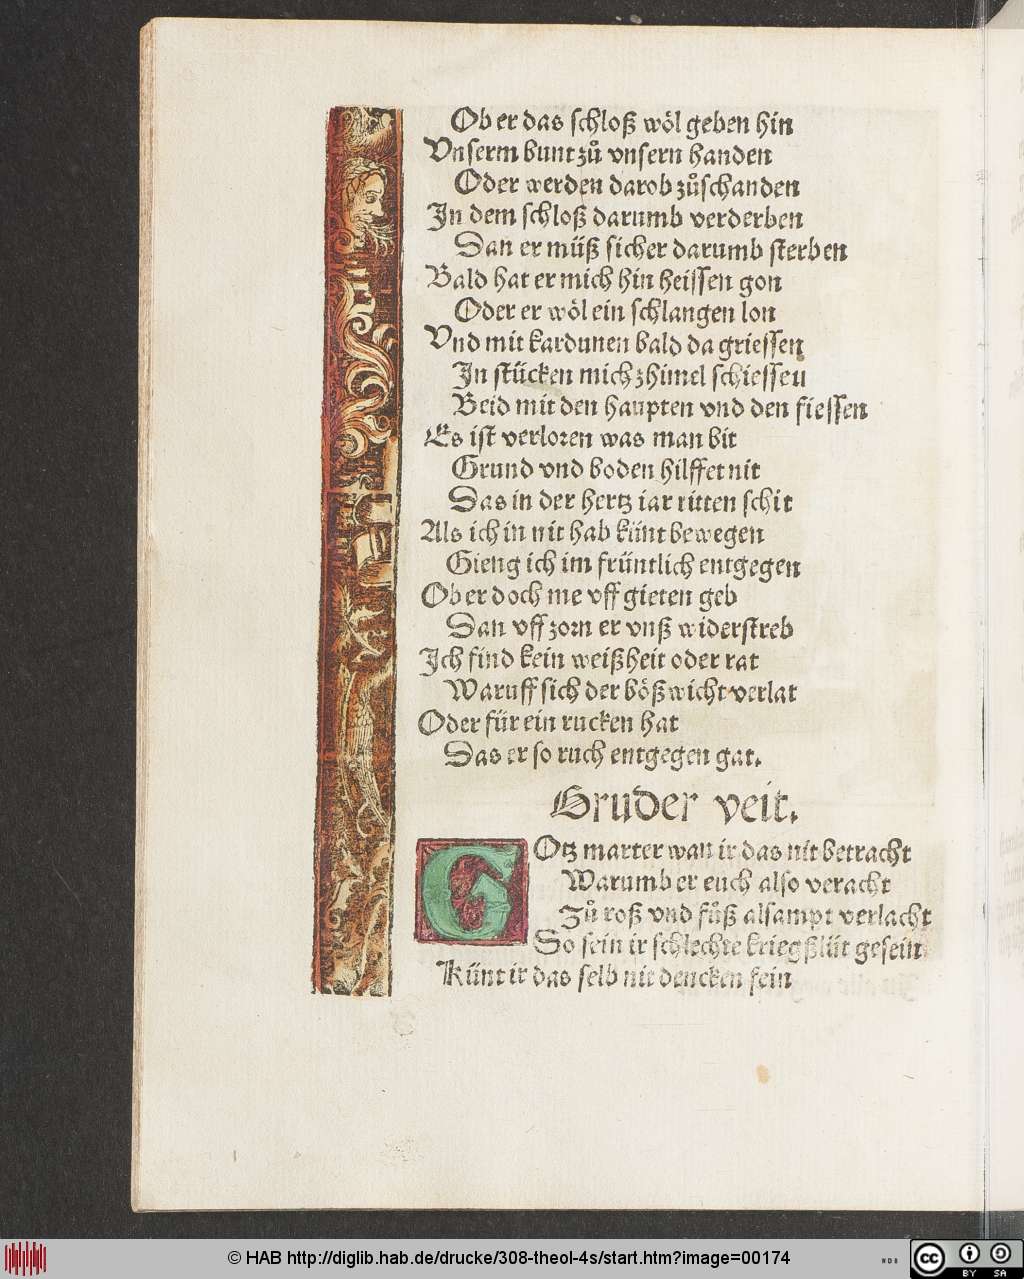 Ob er das schloß wöl geben hin
Vnserm bunt zů vnsern handen
Oder werden darob zůschanden
In dem schloß darumb verderben
Dan er müß sicher darumb sterben
Bald hat er mich hin heissen gon
Oder er wöl ein schlangen lon
Vnd mit kardunen bald da griessen
In stücken mich zhimel schiessen
Beid mit den haupten vnd den fiessen
Es ist verloren was man bit
Grund vnd boden hilffet nit
Das in der hertz iar ritten schit
Als ich in nit hab künt bewegen
Gieng ich im früntlich entgegen
Ob er doch me vff gieten geb
Dan vff zorn er vnß widerstreb
Ich find kein weißheit oder rat
Waruff sich der bößwicht verlat
Oder für ein rucken hat
Das er so ruch entgegen gat.
Bruder veit.
GOtz marter wan ir das nit betracht
Warumb er euch also veracht
Zů roß vnd fůß alsampt verlacht
So sein ir schlechte kriegßlüt gesein
Künt ir das selb nit dencken fein
© HAB http://diglib.hab.de/drucke/308-theol-4s/start.htm?image=00174
WDB
cc BY SA